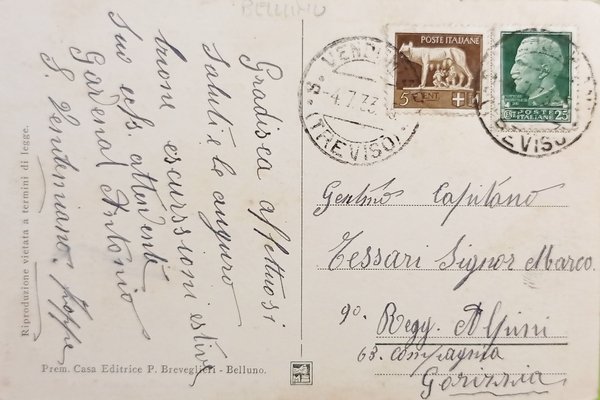 BELLUNO
Gradisca affettuosi
saluti e le auguro
escursioni estive
Suo attendente
Gardenal Antonio
S. Vendemiano. Zoppè
Riproduzione vietata a termini di legge.
Prem. Casa Editrice P. Breveglieri - Belluno.
POSTE ITALIANE
5 CENT
POSTE ITALIANE
CENT 25
S. VENDE
-4.7.33
(TREVISO)
TREVISO
Gentmo Capitano
Tessari Signor Marco.
9º Regg. Alpini
63. compagnia
Gorizzia